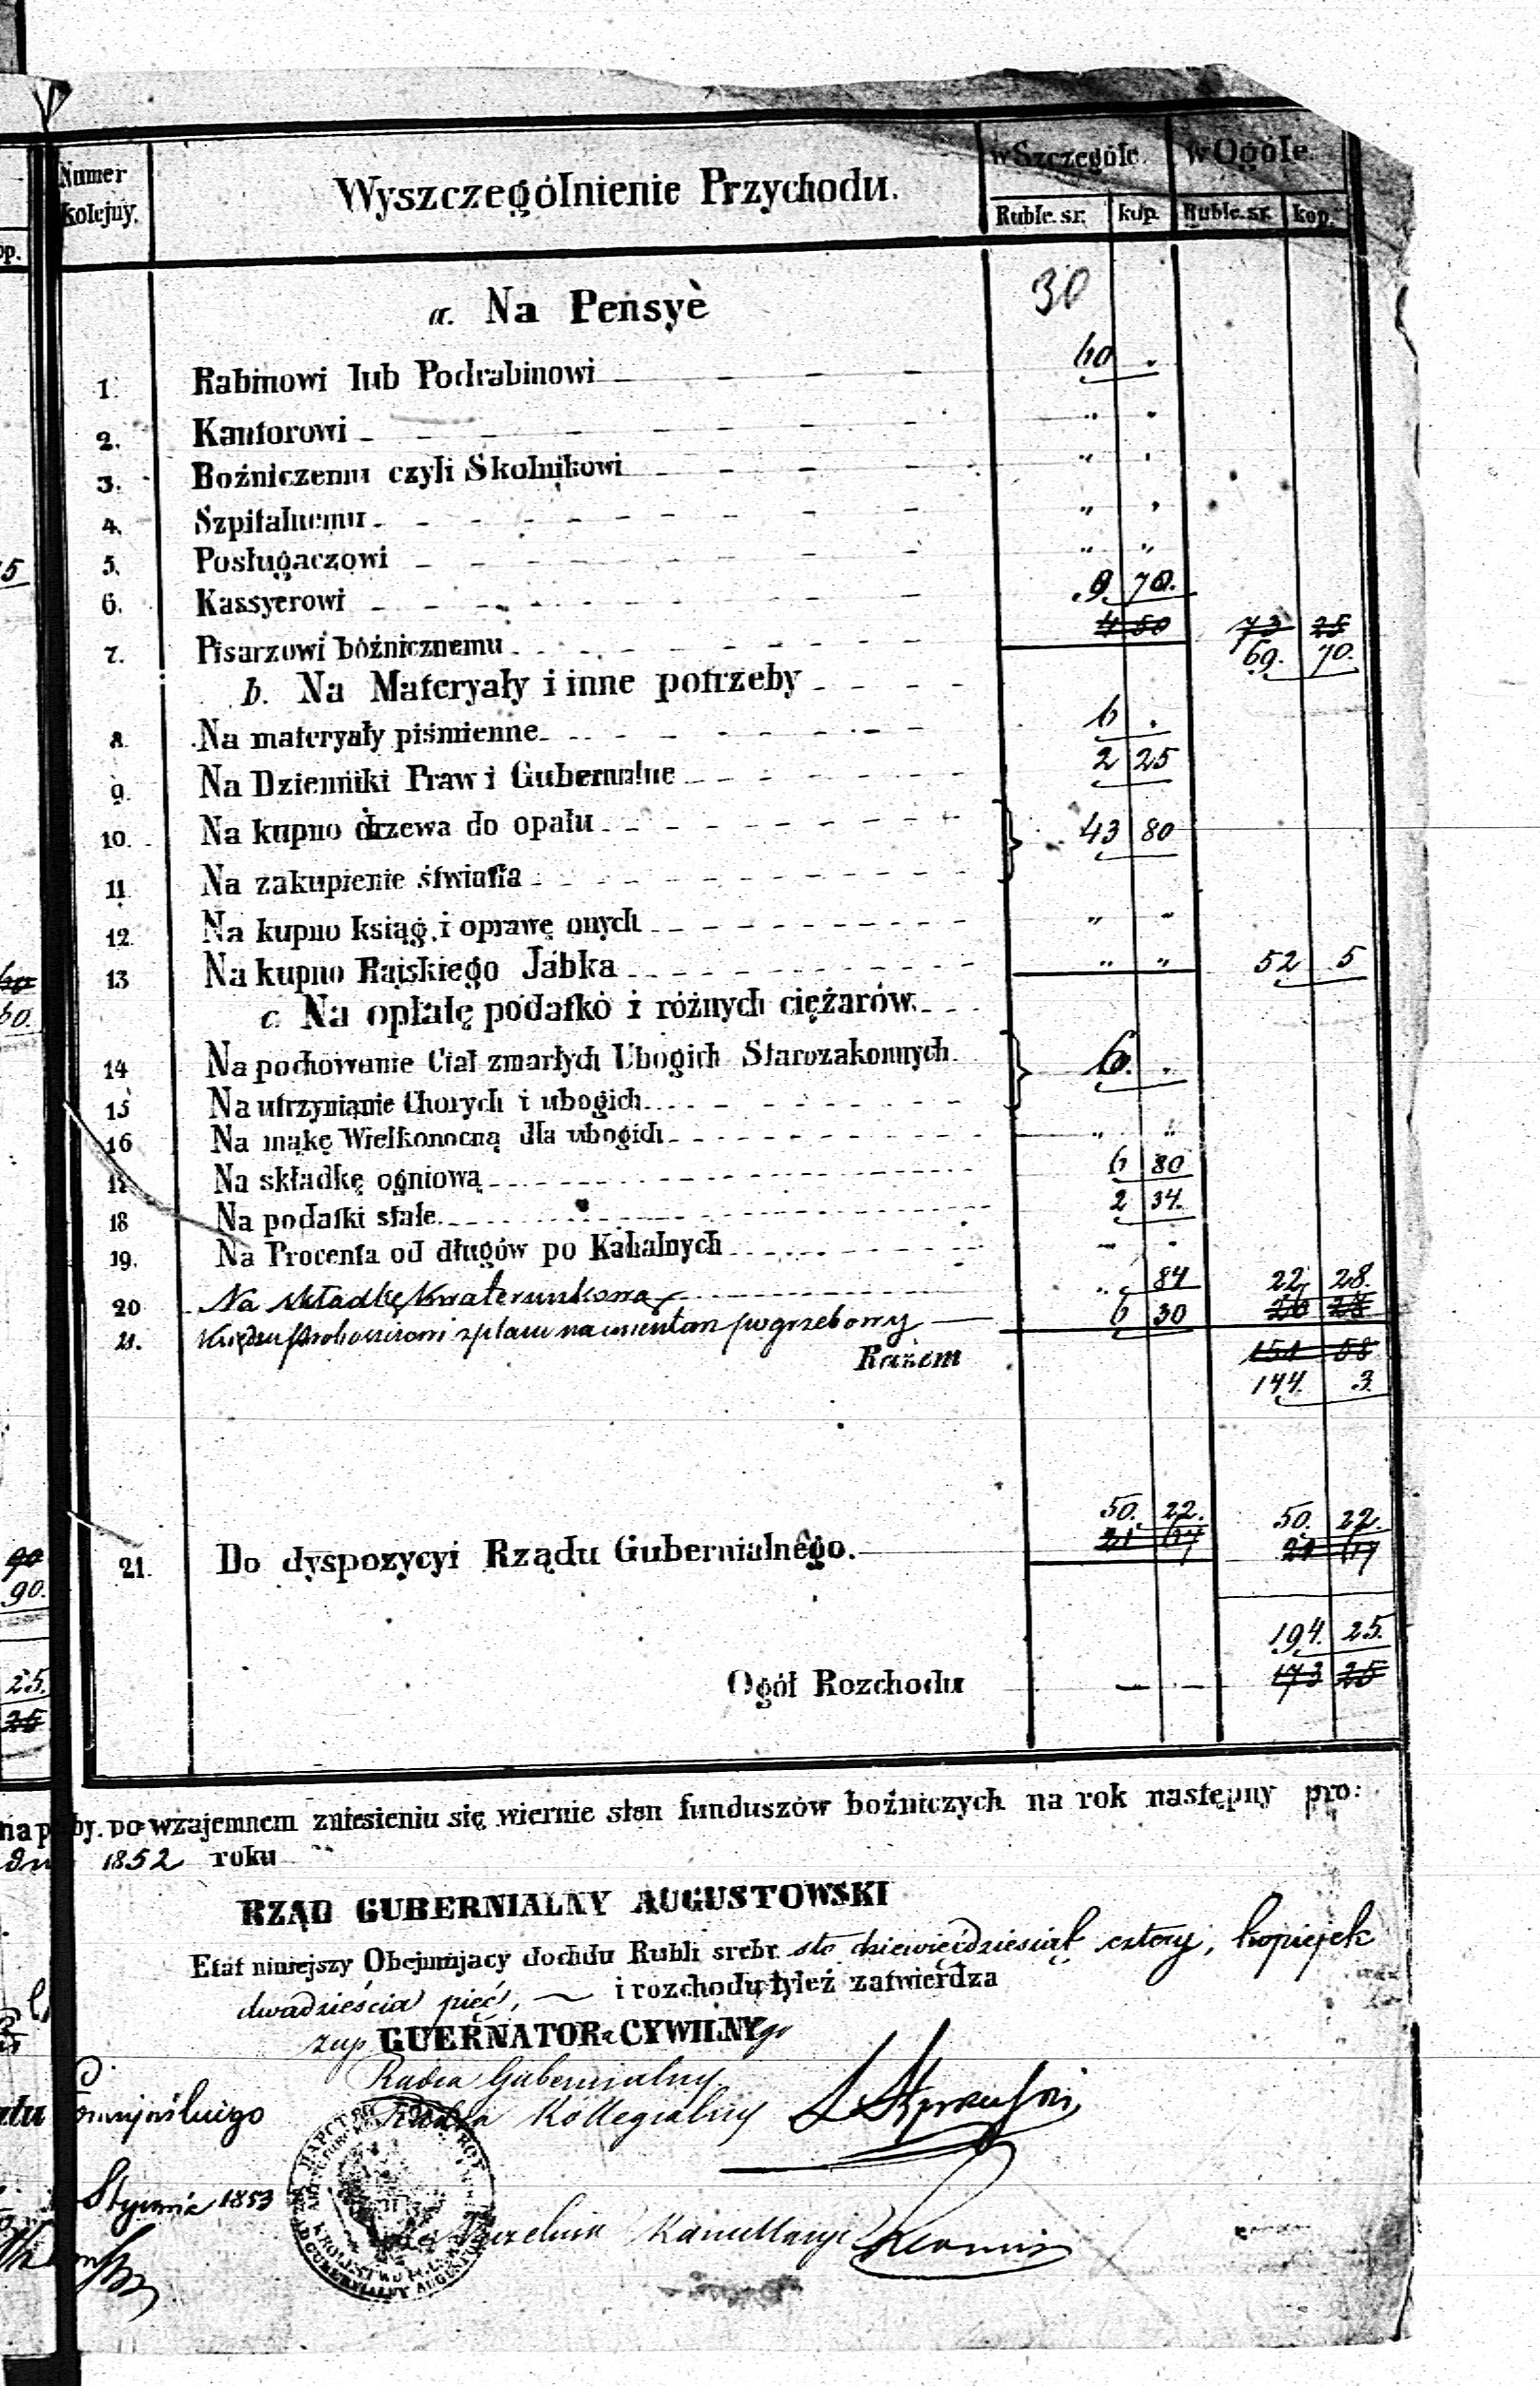 Numer kolejny.
Wyszczególnienie Przychodu.
w Szczególe.
w Ogóle.
Ruble. sr.
kop.
Ruble. sr.
kop.
op.
a. Na Pensyè
30
1. Rabinowi lub Podrabinowi 60 .
2. Kantorowi „ „
3. Boźniczemu czyli Skolnikowi „ „
4. Szpitalnemu „ „
5. Posługaczowi „ „
6. Kassyerowi 9. 70.
7. Pisarzowi bóźnicznemu 4 50 73 25
69. 70.
b. Na Materyały i inne potrzeby
8. Na materyały piśmienne 6 .
9. Na Dzienniki Praw i Gubernialne 2 25
10. Na kupno drzewa do opału 43 80
11 Na zakupienie światła
12 Na kupno ksiąg, i oprawę onych „ „
13 Na kupno Rajskiego Jabka „ „ 52 5
c. Na opłatę podatkó i różnych ciężarów.
14 Na pochowanie Ciał zmarłych Ubogich Starozakonnych 6. .
15 Na utrzymianie Chorych i ubogich
16 Na mąkę Wielkonocną dla ubogich „ „
17 Na składkę ogniową 6 80
18 Na podatki stałe 2 34.
19. Na Procenta od długów po Kahalnych
20 Na składkę kwaterunkową „ 84 22 28.
21. 6 30 26 28
Razem 151 58
144. 3.
50. 22. 50. 22.
21. Do dyspozycyi Rządu Gubernialnego. 21 67 21 67
194. 25.
Ogół Rozchodu 173 25
by. po wzajemnem zniesieniu się wiernie stan funduszów boźniczych na rok następny pro:
1852 roku
RZĄD GUBERNIALNY AUGUSTOWSKI
Etat niniejszy Obejmujacy dochdu Rubli srebr. sto dziewięćdziesiąt cztery, kopiejek
dwadzieścia pięć, i rozchodu tyleż zatwierdza
zap GUERNATORa CYWILNYgo
Radca Gubernialny
Radca Kollegialny
Stycznia 1853
Naczelnik Kancellaryi